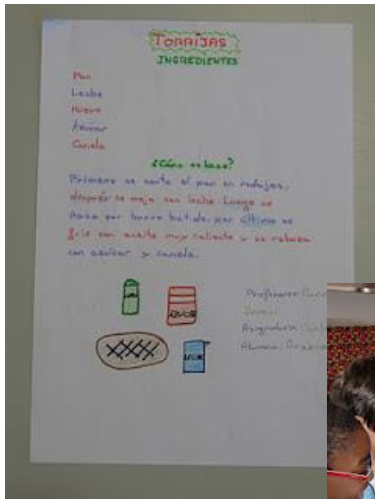 TORRIJAS
INGREDIENTES
Pan
Leche
Huevo
Azúcar
Canela
¿Cómo se hace?
Primero se corta el pan en rodajas,
después se moja con leche. Luego se
pasa por huevo batido, por último se
fríe con aceite muy caliente y se reboza
con azúcar y canela.
AZUCAR
Profesores:
Asignatura:
Alumna: